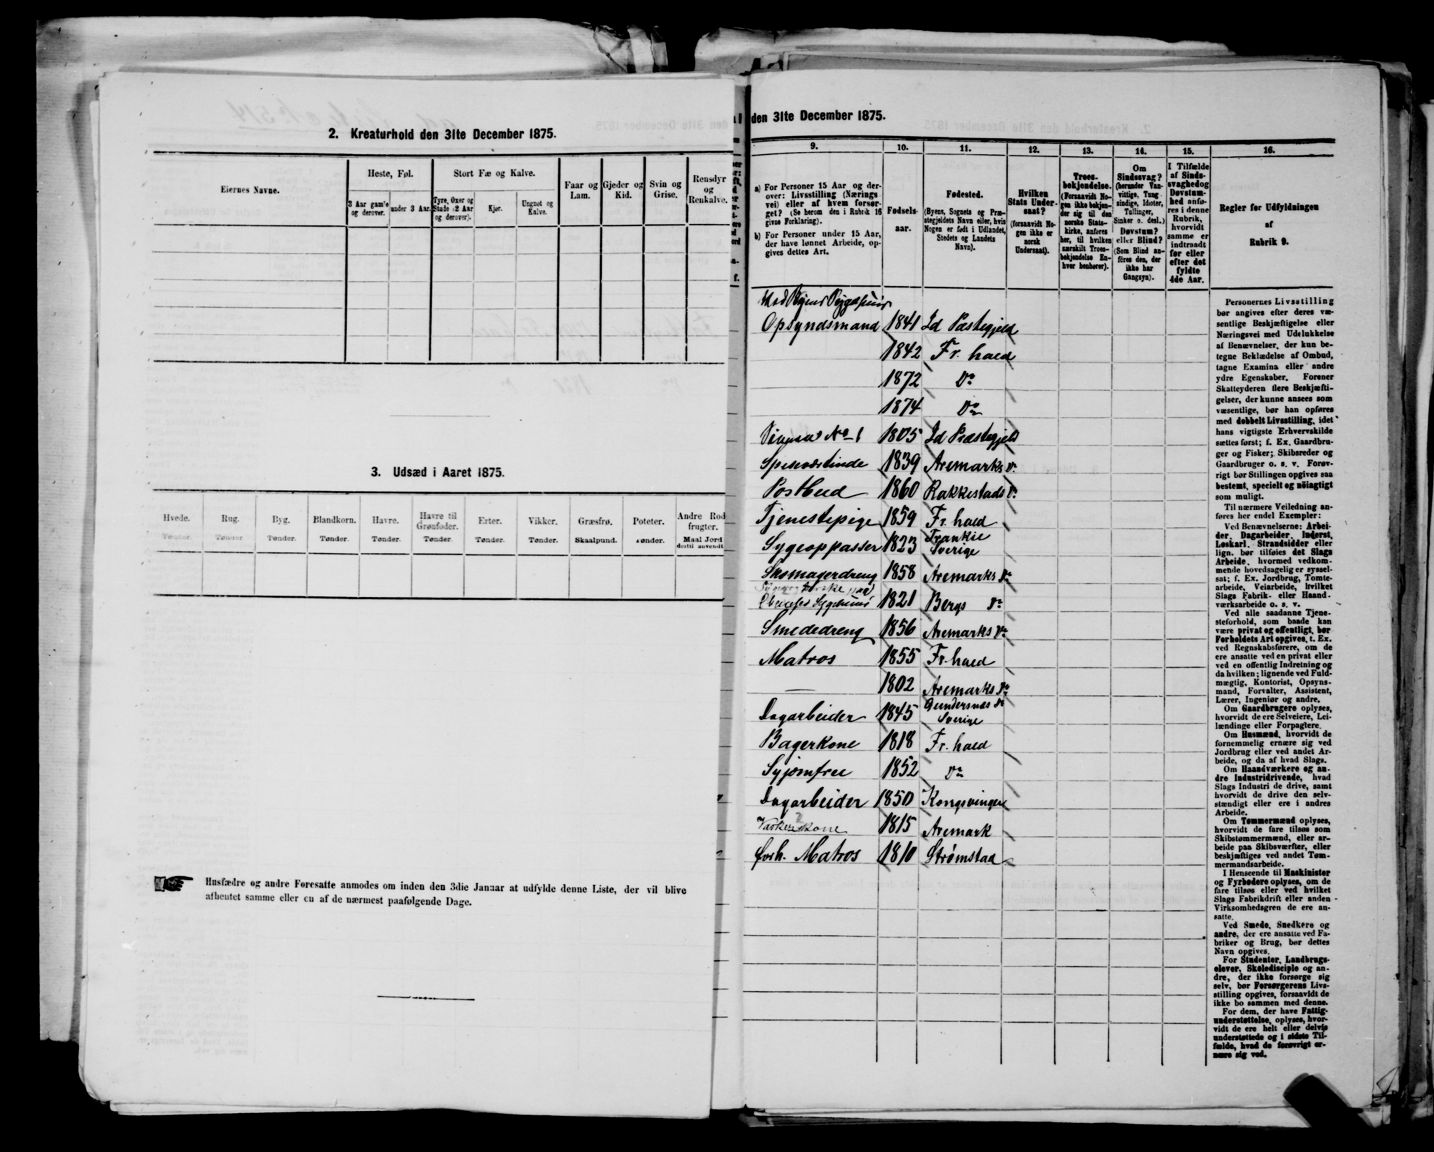 2. Kreaturhold den 31te December 1875.
Eiernes Navne.
Heste, Føl.
Stort Fæ og Kalve.
Faar og Lam.
Gjeder og Kid.
Svin og Grise.
Rensdyr og Renkalve.
3 Aar gam'e og derover.
under 3 Aar.
Tyre, Oxer og Stude (2 Aar og derover).
Kjør.
Ungnøt og Kalve.
3. Udsæd i Aaret 1875.
Hvede.
Rug.
Byg.
Blandkorn.
Havre.
Havre til Grønfoder.
Erter.
Vikker.
Græsfrø.
Poteter.
Andre Rod frugter.
Tønder.
Tønder.
Tønder.
Tønder.
Tønder.
Tønder.
Tønder.
Tønder.
Skaalpund.
Tønder.
Maal Jord dertil anvendt
Husfædre og andre Foresatte anmodes om inden den 3die Januar at udfylde denne Liste, der vil blive
afhentet samme eller en af de nærmest paafølgende Dage.
den 31te December 1875.
9.
10.
11.
12.
13.
14.
15.
16.
a) For Personer 15 Aar og der-
over: Livsstilling (Nærings
vei) eller af hvem forsør-
get? (Se herom den i Rubrik 16
givne Forklaring).
b) For Personer under 15 Aar,
der have lønnet Arbeide, op-
gives dettes Art.
Fødsels-
aar.
Fødested.
(Byens, Sognets og Præ-
stegjeldets Navn eller, hvis
Nogen er født i Udlandet,
Stedets og Landets
Navn).
Hvilken
Stats Under-
saat?
(forsaavidt No-
gen ikke er
norsk
Undersaat).
Troes-
bekjendelse.
(Forsaavidt No-
gen ikke bekjen-
der sig til den
norske Stats-
kirke, anføres
her, til hvilken
særskilt Troes-
bekjendelse En-
hver henhører).
Om
Sindssvag?
(herunder Van-
vittige, Tung-
sindige, Idioter,
Tullinger,
Sinker o. desl.)
Døvstum?
eller Blind?
(Som Blind an-
føres den, der
ikke har
Gangsyn).
I Tilfælde
af Sinds-
svaghedog
Døvstum-
hed anfø-
res i denne
Rubrik,
hvorvidt
samme er
indtraadt
før eller
efter det
fyldte
4de Aar.
Regler for Udfyldningen
af
Rubrik 9.
Opsyndsmand 1841 Id Præstegjeld
1842 Fr. hald
1872 Do
1874 Do
No 1 1805 Id Præstegjeld
Spiseværtinde 1839 Aremarks Do
Postbud 1860 Rakkestads Do
Tjenestepige 1859 Fr. hald
Sygeoppasser 1823 Sverige
Skomagerdreng 1858 Aremarks Do
1821 Bergs Do
Smededreng 1856 Aremarks Do
Matros 1855 Fr. hald
1802 Aremarks Do
Dagarbeider 1845 Sverige
Bagerkone 1818 Fr. hald
Syjomfru 1852 Do
Dagarbeider 1850 Kongsvinger
Vaskerkone 1815 Aremark
forh. Matros 1810 Strømstad
Personernes Livsstilling
bør angives efter deres væ-
sentlige Beskjæftigelse eller
Næringsvei med Udelukkelse
af Benævnelser, der kun be-
tegne Beklædelse af Ombud,
tagne Examina eller andre
ydre Egenskaber. Forener
Skatteyderen flere Beskjæfti-
gelser, der kunne ansees som
væsentlige, bør han opføres
med dobbelt Livsstilling, idet
hans vigtigste Erhvervskilde
sættes først; f. Ex. Gaardbru-
ger og Fisker; Skibsreder og
Gaardbruger o. s. v. Forøv-
rigt bør Stillingen opgives saa
bestemt, specielt og nöiagtigt
som muligt.
Til nærmere Veiledning an-
føres her endel Exempler:
Ved Benævnelserne: Arbei-
der, Dagarbeider, Inderst,
Løskarl, Strandsidder eller
lign. bør tilføies det Slags
Arbeide, hvormed vedkom-
mende hovedsagelig er syssel-
sat; f. Ex. Jordbrug, Tomte-
arbeide, Veiarbeide, hvilket
Slags Fabrik- eller Haand-
værksarbeide o. s. v.
Ved alle saadanne Tjene-
steforhold, som baade kan
være privat og offentligt, bør
Forholdets Art opgives, t. Ex.
ved Regnskabsførere, om de
ere ansatte ved en privat eller
ved en offentlig Indretning og
da hvilken; lignende ved Fuld-
mægtig, Kontorist, Opsyns-
mand, Forvalter, Assistent,
Lærer, Ingeniør og andre.
Om Gaardbrugere oplyses,
hvorvidt de ere Selveiere, Lei-
lændinge eller Forpagtere.
Om Husmænd, hvorvidt de
fornemmelig ernære sig ved
Jordbrug eller ved andet Ar-
beide, og da af hvad Slags.
Om Haandværkere og an-
dre Industridrivende, hvad
Slags Industri de drive, samt
hvorvidt de drive den selv-
stændigt eller ere i andres
Arbeide.
Om Tømmermænd oplyses,
hvorvidt de fare tilsøs som
Skibstømmermænd, eller ar-
beide paa Skibsværfter, eller
beskjæftiges ved andet Tøm-
mermandsarbeide.
I Henseende til Maskinister
og Fyrbødere oplyses, om de
fare tilsøs eller ved hvilket
Slags Fabrikdrift eller anden
Virksomhedsgren de ere an-
satte.
Ved Smede, Snedkere og
andre, der ere ansatte ved Fa-
briker og Brug, bør dettes
Navn opgives.
For Studenter, Landbrugs-
elever, Skoledisciple og an-
dre, der ikke forsørge sig
selv, bør Forsørgerens Livs-
stilling opgives, forsaavidt de
ikke bo sammen med denne.
For dem, der have Fattig-
understøttelse, oplyses, hvor-
vidt de ere helt eller delvis
understøttede og i sidste Til-
fælde, hvad de forøvrigt er-
nære sig ved.